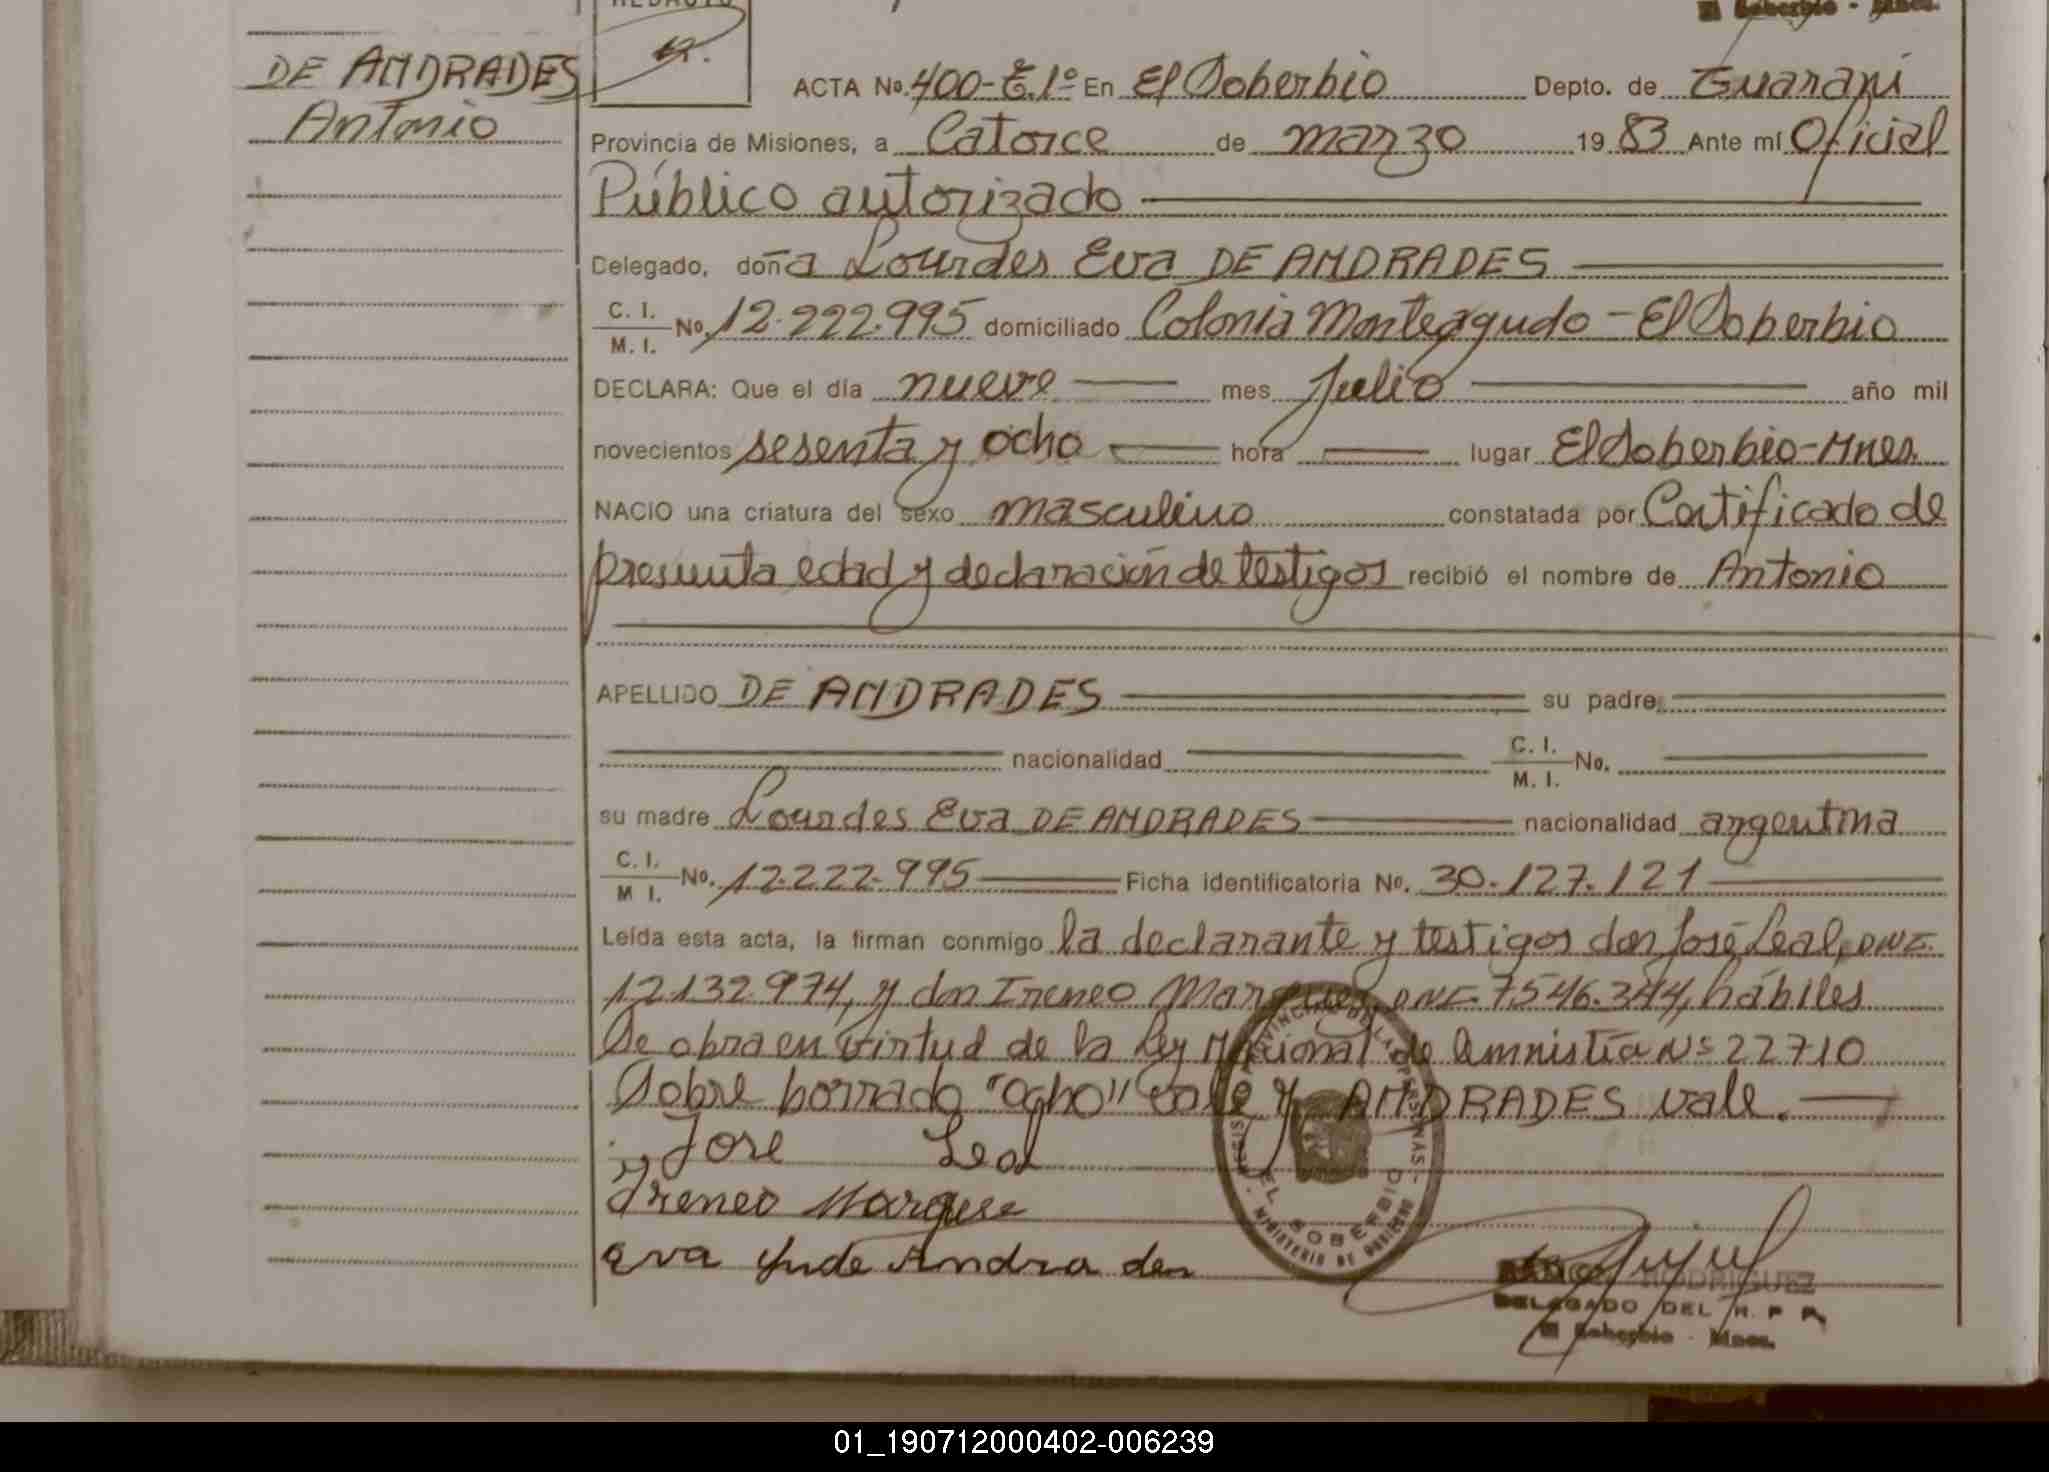 REDACTO
El Soberbio - Mnes.
DE ANDRADES
Antonio
ACTA No. 400-E.1º En El Soberbio Depto. de Guaraní
Provincia de Misiones, a Catorce de marzo 1983 Ante mí Oficial
Público autorizado
Delegado, doña Lourdes Eva DE ANDRADES
C. I. M. I. No. 12.222.995 domiciliado Colonia Monteagudo - El Soberbio
DECLARA: Que el día nueve mes Julio año mil
novecientos sesenta y ocho hora lugar El Soberbio - Mnes.
NACIO una criatura del sexo masculino constatada por Certificado de
presunta edad y declaración de testigos recibió el nombre de Antonio
APELLIDO DE ANDRADES su padre
nacionalidad C. I. M. I. No.
su madre Lourdes Eva DE ANDRADES nacionalidad argentina
C. I. M I. No. 12.222.995 Ficha identificatoria No. 30.127.121
Leída esta acta, la firman conmigo la declarante y testigos don José Leal, DNI.
12132.974, y don Ireneo Marques, DNI. 7.546.344, hábiles
Se obra en virtud de la Ley Nacional de Amnistía Nº 22710
Sobre borrado "ocho" vale y ANDRADES vale.
Jose Leal
Ireneo Marques
eva Andra des
EL SOBERBIO
MINISTERIO DE GOBIERNO
RAMON RODRIGUEZ
DELEGADO DEL R. P. P.
El Soberbio - Mnes.
01_190712000402-006239